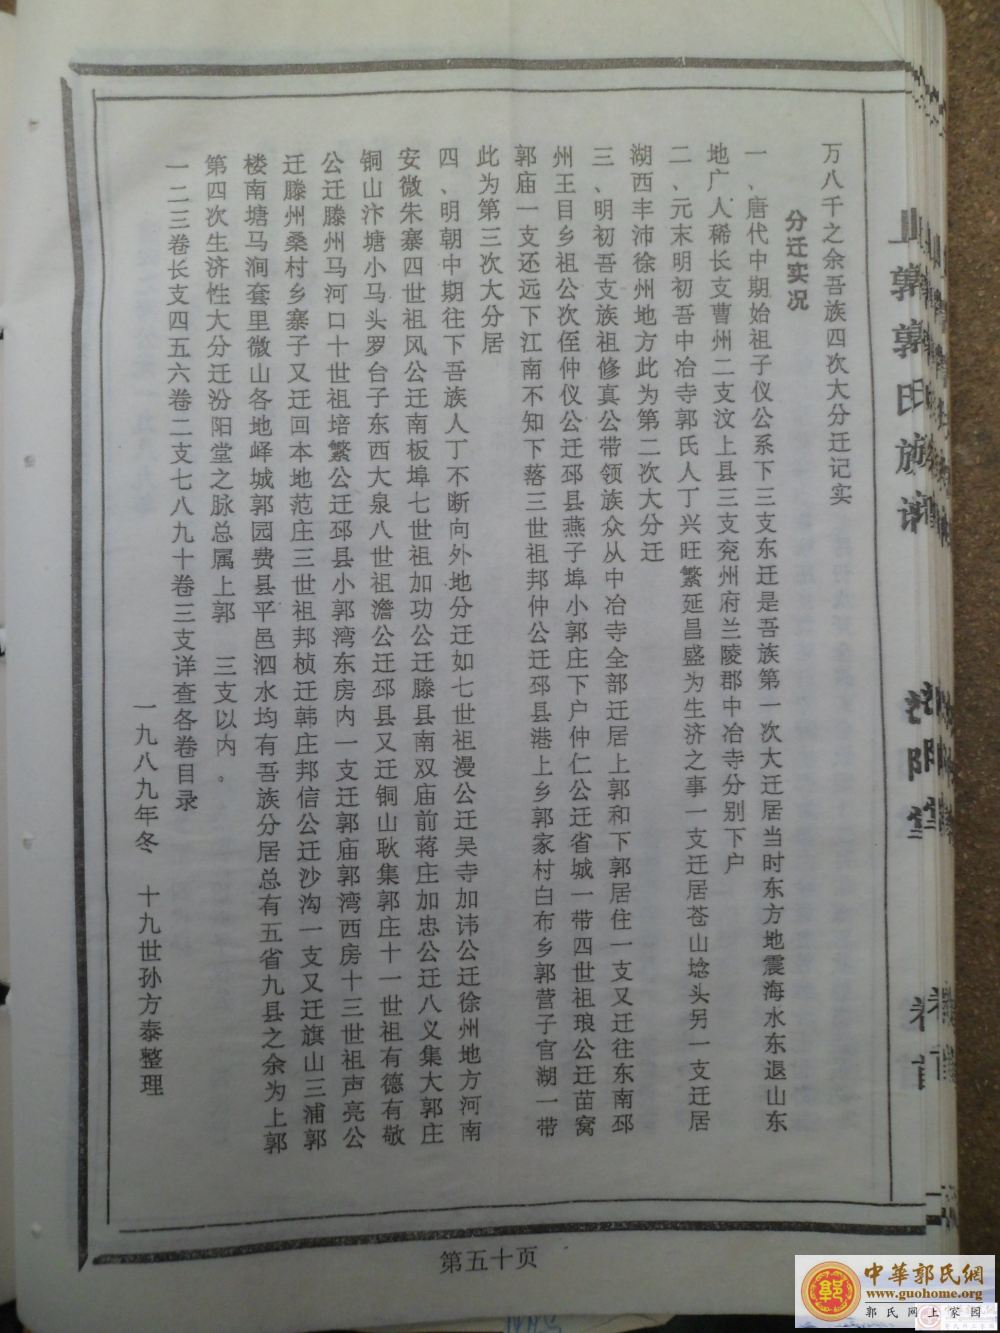 万八千之余吾族四次大分迁记实
分迁实况
一、唐代中期始祖子仪公系下三支东迁是吾族第一次大迁居当时东方地震海水东退山东
地广人稀长支曹州二支汶上县三支兖州府兰陵郡中冶寺分别下户
二、元末明初吾中冶寺郭氏人丁兴旺繁延昌盛为生济之事一支迁居苍山埝头另一支迁居
湖西丰沛徐州地方此为第二次大分迁
三、明初吾支族祖修真公带领族众从中冶寺全部迁居上郭和下郭居住一支又迁往东南邳
州王目乡祖公次侄仲仪公迁邳县燕子埠小郭庄下户仲仁公迁省城一带四世祖琅公迁苗窝
郭庙一支还远下江南不知下落三世祖邦仲公迁邳县港上乡郭家村白布乡郭营子官湖一带
此为第三次大分居
四、明朝中期往下吾族人丁不断向外地分迁如七世祖漫公迁吴寺加讳公迁徐州地方河南
安微朱寨四世祖风公迁南板埠七世祖加功公迁滕县南双庙前蒋庄加忠公迁八义集大郭庄
铜山汴塘小马头罗台子东西大泉八世祖澹公迁邳县又迁铜山耿集郭庄十一世祖有德有敬
公迁滕州马河口十世祖培繁公迁邳县小郭湾东房内一支迁郭庙郭湾西房十三世祖声亮公
迁滕州桑村乡寨子又迁回本地范庄三世祖邦桢迁韩庄邦信公迁沙沟一支又迁旗山三浦郭
楼南塘马涧套里微山各地峄城郭园费县平邑泗水均有吾族分居总有五省九县之余为上郭
第四次生济性大分迁汾阳堂之脉总属上郭 三支以内。
一二三卷长支四五六卷二支七八九十卷三支详查各卷目录
一九八九年冬 十九世孙方泰整理
郭郭氏族谱 汾阳堂 卷首
第五十页
中華郭氏網
www.guohome.org
郭氏网上家园